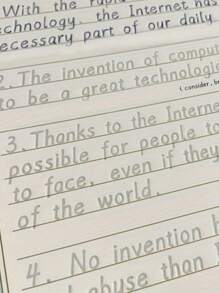 With the rapi
chnology, the Internet has
ecessary part of our daily
2. The invention of comput
to be a great technologic
( consider, be
3. Thanks to the Interne
possible for people to
to face, even if they
of the world.
4. No invention h
abuse than